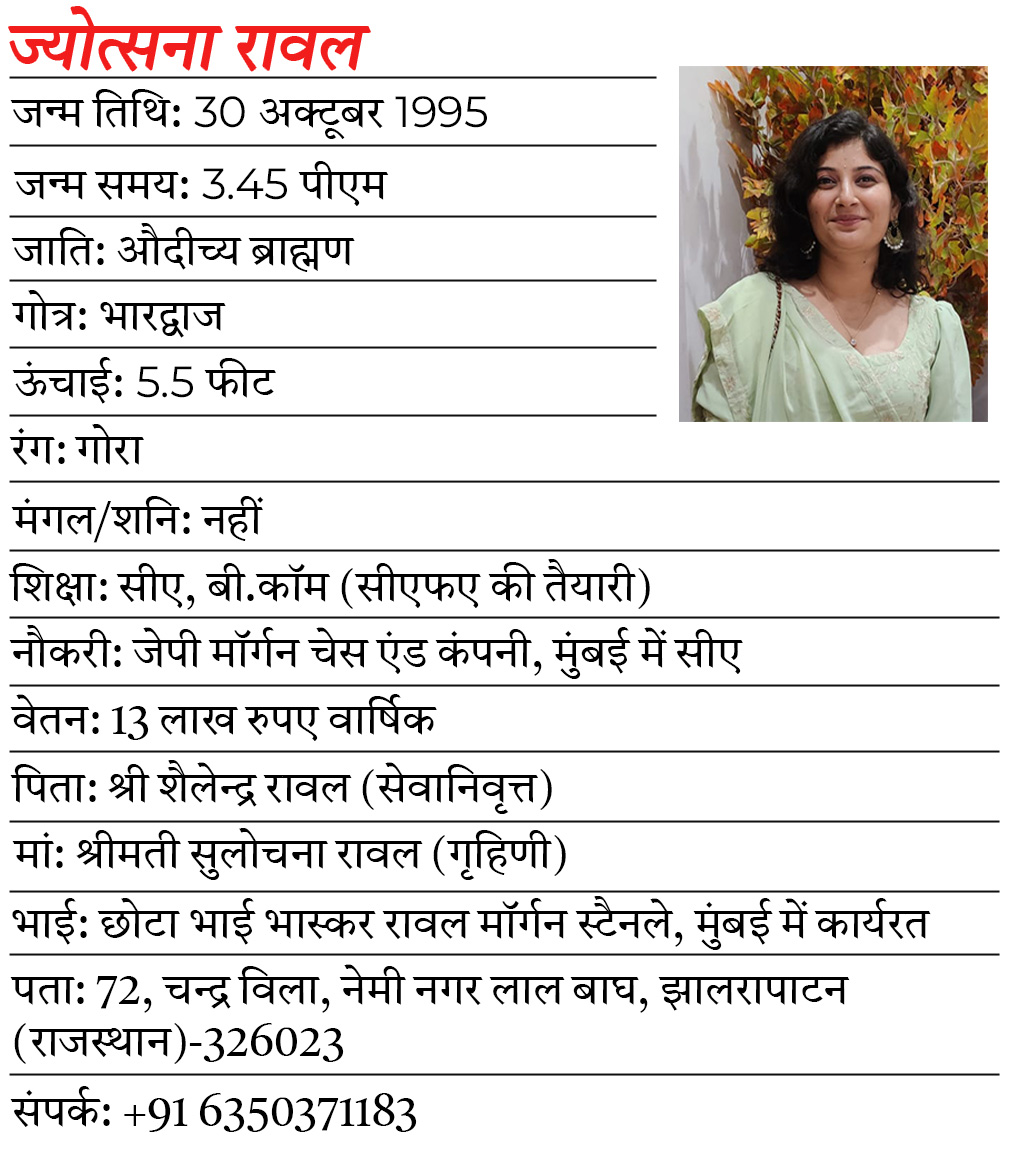 ज्योत्सना रावल
जन्म तिथि: 30 अक्टूबर 1995
जन्म समय: 3.45 पीएम
जाति: औदीच्य ब्राह्मण
गोत्र: भारद्वाज
ऊंचाई: 5.5 फीट
रंग: गोरा
मंगल/शनि: नहीं
शिक्षा: सीए, बी.कॉम (सीएफए की तैयारी)
नौकरी: जेपी मॉर्गन चेस एंड कंपनी, मुंबई में सीए
वेतन: 13 लाख रुपए वार्षिक
पिता: श्री शैलेन्द्र रावल (सेवानिवृत्त)
मां: श्रीमती सुलोचना रावल (गृहिणी)
भाई: छोटा भाई भास्कर रावल मॉर्गन स्टैनले, मुंबई में कार्यरत
पता: 72, चन्द्र विला, नेमी नगर लाल बाघ, झालरापाटन
(राजस्थान)-326023
संपर्क: +91 6350371183